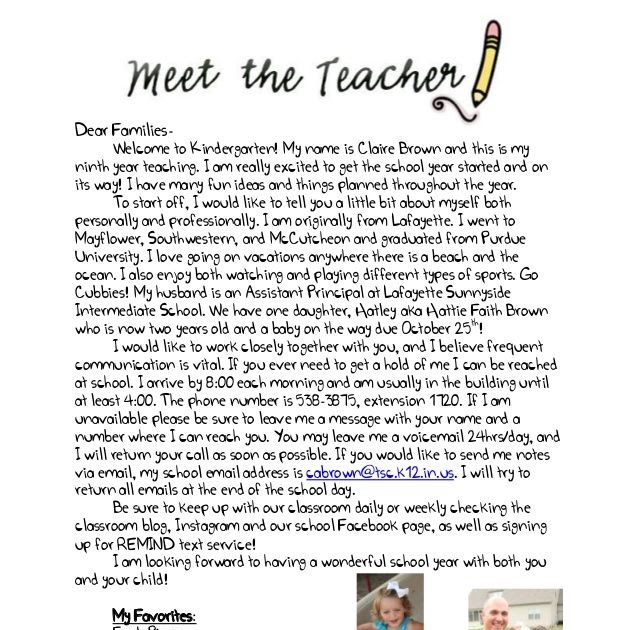 Meet the Teacher
Dear Families-
Welcome to Kindergarten! My name is Claire Brown and this is my
ninth year teaching. I am really excited to get the school year started and on
its way! I have many fun ideas and things planned throughout the year.
To start off, I would like to tell you a little bit about myself both
personally and professionally. I am originally from Lafayette. I went to
Mayflower, Southwestern, and McCutcheon and graduated from Purdue
University. I love going on vacations anywhere there is a beach and the
ocean. I also enjoy both watching and playing different types of sports. Go
Cubbies! My husband is an Assistant Principal at Lafayette Sunnyside
Intermediate School. We have one daughter, Hatley aka Hattie Faith Brown
who is now two years old and a baby on the way due October 25th!
I would like to work closely together with you, and I believe frequent
communication is vital. If you ever need to get a hold of me I can be reached
at school. I arrive by 8:00 each morning and am usually in the building until
at least 4:00. The phone number is 538-3875, extension 1720. If I am
unavailable please be sure to leave me a message with your name and a
number where I can reach you. You may leave me a voicemail 24hrs/day, and
I will return your call as soon as possible. If you would like to send me notes
via email, my school email address is cabrown@tsc.k12.in.us. I will try to
return all emails at the end of the school day.
Be sure to keep up with our classroom daily or weekly checking the
classroom blog, Instagram and our school Facebook page, as well as signing
up for REMIND text service!
I am looking forward to having a wonderful school year with both you
and your child!
My Favorites: